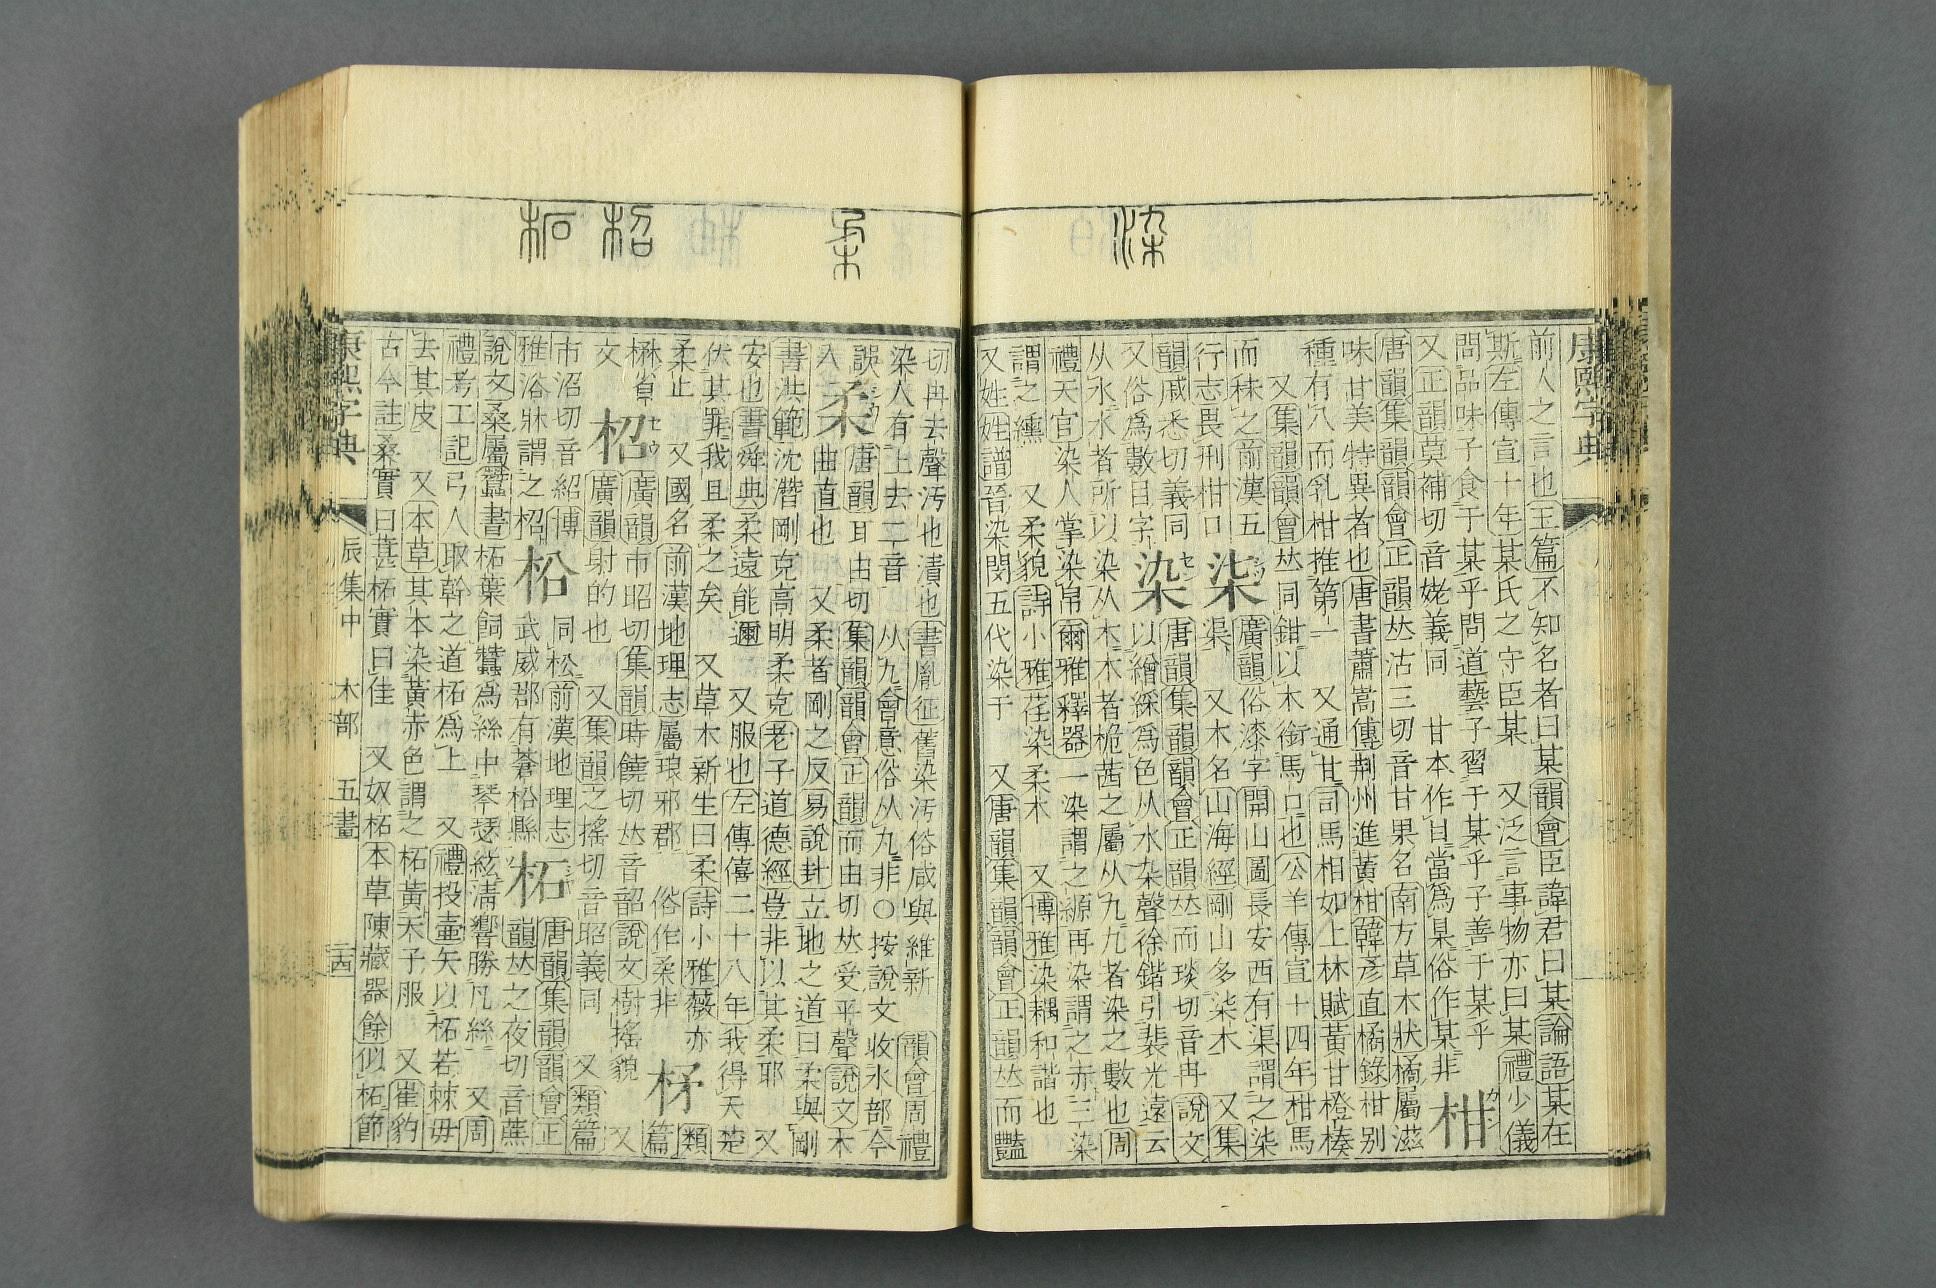 染
康熙字典
前人之言也玉篇不知名者曰某韻會臣諱君曰某論語某在
斯左傳宣十年某氏之守臣某 又泛言事物亦曰某禮少儀
問品味子食于某乎問道藝子習于某乎子善于某乎
又正韻莫補切音姥義同 甘本作甘當爲某俗作某非
柑
唐韻集韻韻會正韻𠀤沽三切音甘果名南方草木狀橘屬滋
味甘美特異者也唐書蕭嵩傳荆州進黃柑韓彥直橘錄柑別
種有八而乳柑推第一 又通甘司馬相如上林賦黃甘橙楱
又集韻韻會𠀤同鉗以木銜馬口也公羊傳宣十四年柑馬
而秣之前漢五
行志畏刑柑口
柒
廣韻俗漆字開山圖長安西有渠謂之柒
渠 又木名山海經剛山多柒木 又集
韻戚悉切義同
又俗爲數目字
染
唐韻集韻韻會正韻𠀤而琰切音冉說文
以繒綵爲色从水杂聲徐鍇引裴光遠云
从水水者所以染从木木者梔茜之屬从九九者染之數也周
禮天官染人掌染帛爾雅釋器一染謂之縓再染謂之赤三染
謂之纁 又柔貌詩小雅荏染柔木 又博雅染耦和諧也
又姓姓譜晉染閔五代染干 又唐韻集韻韻會正韻𠀤而豔
柔 柖 柘
切冉去聲汚也漬也書胤征舊染汚俗咸與維新 韻會周禮
染人有上去二音 从九會意俗从丸非○按說文收水部今
誤
入
柔
唐韻耳由切集韻韻會正韻而由切𠀤受平聲說文木
曲直也 又柔者剛之反易說卦立地之道曰柔與剛
書洪範沈潛剛克高明柔克老子道德經豈非以其柔耶 又
安也書舜典柔遠能邇 又服也左傳僖二十八年我得天楚
伏其罪我且柔之矣 又草木新生曰柔詩小雅薇亦
柔止 又國名前漢地理志屬琅邪郡 俗作桑非
柕
類
篇
楙省
文
柖
廣韻市昭切集韻時饒切𠀤音韶說文樹搖貌 又
廣韻射的也 又集韻之搖切音昭義同 又類篇
市沼切音紹博
雅浴牀謂之柖
枀
同松前漢地理志
武威郡有蒼松縣
柘
唐韻集韻韻會正
韻𠀤之夜切音蔗
說文桑屬蠶書柘葉飼蠶爲絲中琴瑟絃清響勝凡絲 又周
禮考工記弓人取幹之道柘爲上 又禮投壷矢以柘若棘毋
去其皮 又本草其木染黃赤色謂之柘黃天子服 又崔豹
古今註桑實曰葚柘實曰佳 又奴柘本草陳藏器餘似柘節
康熙字典 辰集中 木部 五畫